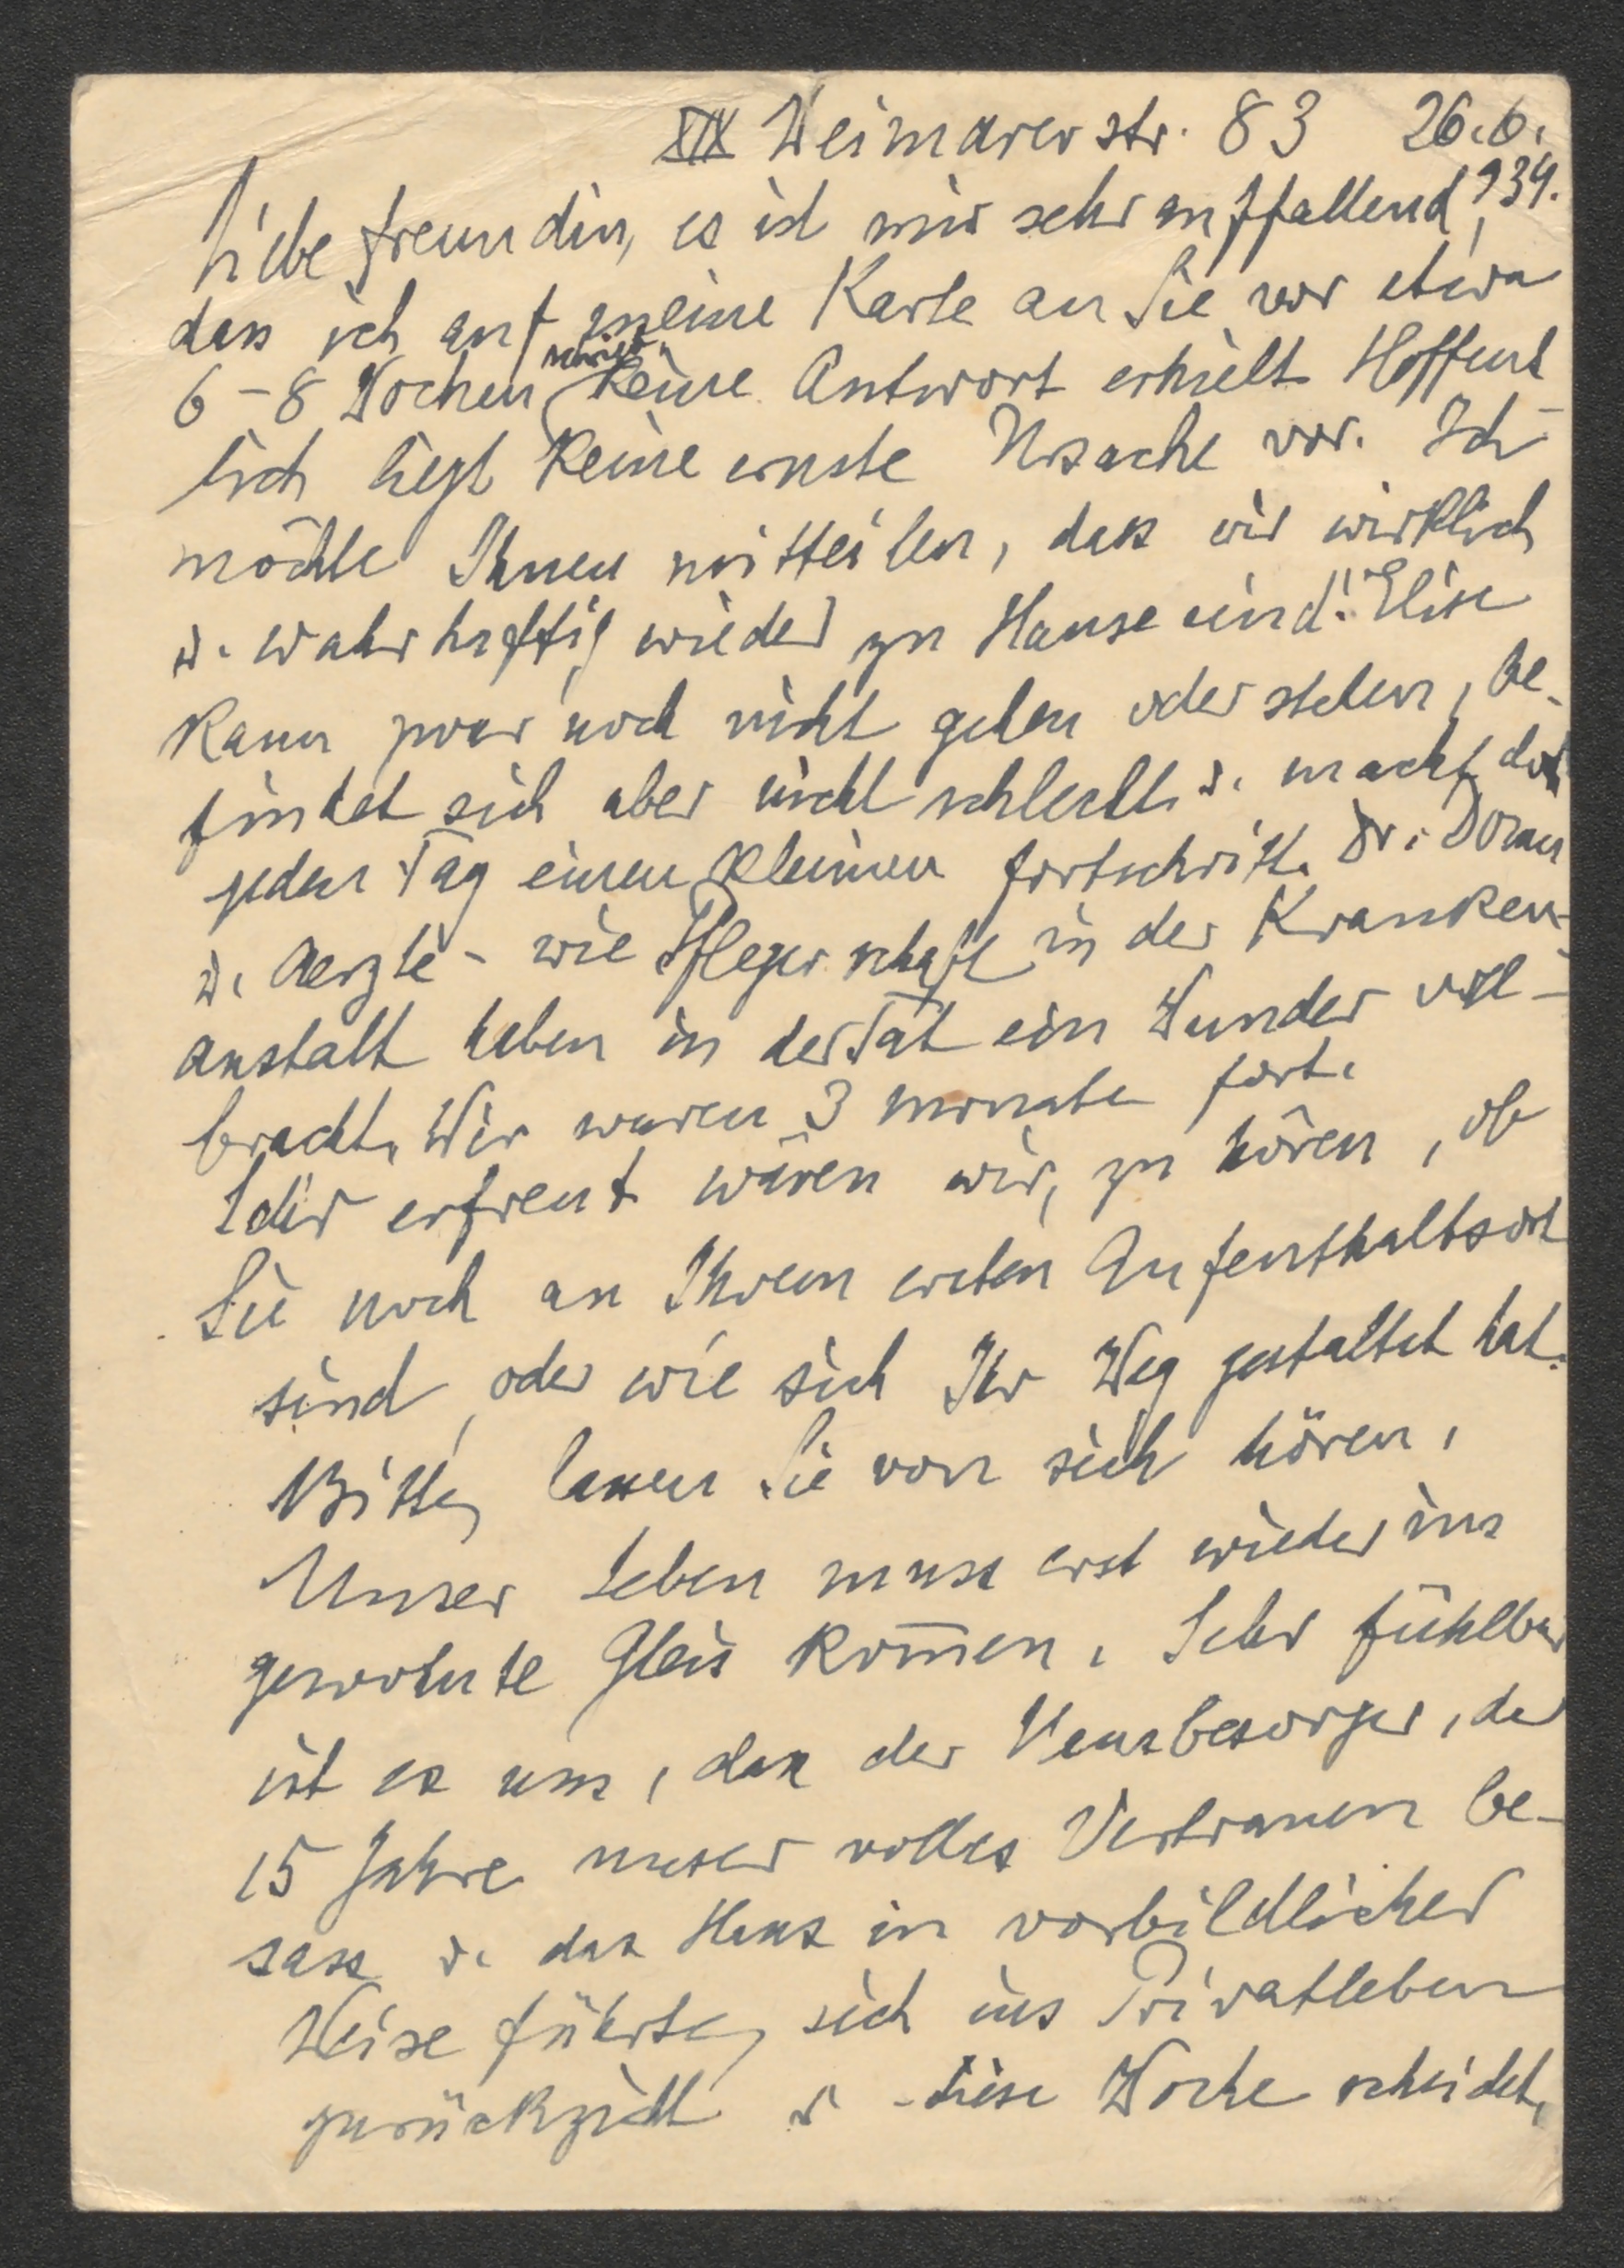 XIX Weimarerstr. 83 26.6.
934.
Liebe Freundin, es ist mir sehr auffallend,
dass ich auf meine Karte an Sie vor etwa
6-8 Wochen keine Antwort erhielt. Hoffent-
lich liegt keine ernste Ursache vor. Ich
möchte Ihnen mitteilen, dass wir wirklich
u. wahrhaftig wieder zu Hause sind! Elise
kann zwar noch nicht gehen oder stehen, be-
findet sich aber nicht schlecht u. macht doch
jeden Tag einen kleinen Fortschritt. Dr.
u. Aerzte- wie Pflegerschaft in der Kranken-
anstalt haben in der Tat ein Wunder voll-
bracht. Wir waren 3 Monate fort.
Sehr erfreut wären wir, zu hören, ob
Sie noch an Ihrem ersten Aufenthaltsort
sind, oder wie sich Ihr Weg gestaltet hat.
Bitte, lassen Sie von sich hören.
Unser Leben muss erst wieder ins
gewohnte Gleis kom̅en. Sehr fühlbar
ist es uns, dass der Hausbesorger, der
15 Jahre unser volles Vertrauen be-
sass u. das Haus in vorbildlicher
Weise führte, sich ins Privatleben
zurückzieht u. diese Woche scheidet.